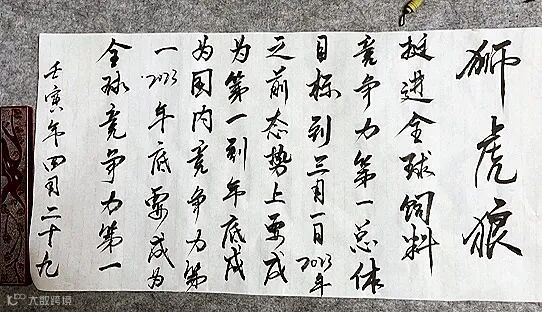 狮虎狼
挺进全球饲料
竞争力第一总体
目标到三月一日2023年
之前态势上要成
为第一到年底成
为国内竞争力第
一2023年底要成为
全球竞争力第一
壬寅年四月二十九
大数跨境